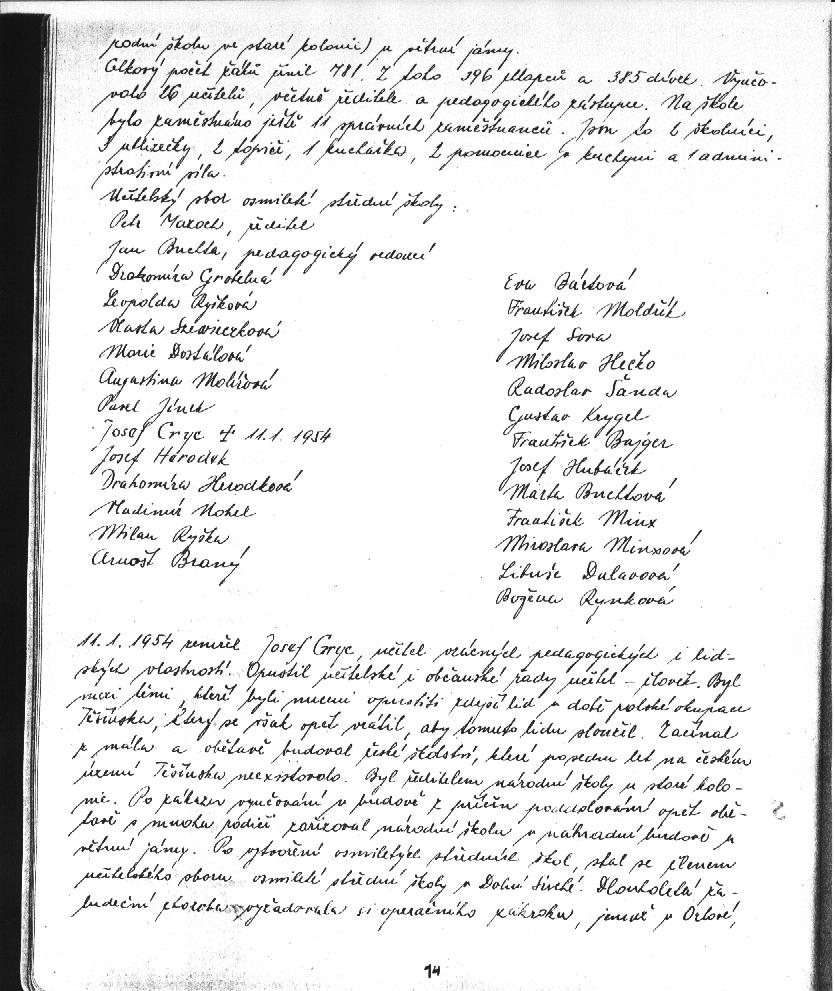 rodní školu ve staré kolonii) u větrní jámy.
Celkový počet žáků činil 781. Z toho 396 chlapců a 385 dívek. Vyučo-
valo 26 učitelů, včetně ředitele a pedagogického zástupce. Na škole
bylo zaměstnáno ještě 11 správních zaměstnanců. Jsou to 2 školníci,
3 uklízečky, 2 topiči, 1 kuchařka, 2 pomocnice v kuchyni a 1 admini-
strativní síla.
Učitelský sbor osmileté střední školy:
Petr Maroch, ředitel
Jan Buchta, pedagogický vedoucí
Drahomíra Grátelná
Leopolda Ryšková
Vlasta Szewieczková
Marie Dostálová
Augustina Molišová
Pavel Jínek
Josef Gryc + 11.1. 1954
Josef Herodek
Drahomíra Herodková
Vladimír Nohel
Milan Ryška
Arnošt Braný
Eva Bártová
František Moldřík
Josef Sova
Miloslav Hečko
Radoslav Šanda
Gustav Krygel
František Bajger
Josef Hubáček
Marta Buchtová
František Minx
Miroslava Minxová
Libuše Dulavová
Božena Rynková
11.1. 1954 zemřel Josef Gryc, učitel vzácných pedagogických i lid-
ských vlastností. Opustil učitelské i občanské řady učitel – člověk. Byl
mezi těmi, kteří byli nuceni opustiti zdejší lid v době polské okupace
Těšínska, který se však opět vrátil, aby tomuto lidu sloužil. Začínal
z mála a obětavě budoval české školství, které po sedm let na českém
území Těšínska neexistovalo. Byl ředitelem národní školy u staré kolo-
nie. Po zákazu vyučování v budově z příčin poddolování opět obě-
tavě s mnoha rodiči zařizoval národní školu v náhradní budově u
větrní jámy. Po vytvoření osmiletých středních škol, stal se členem
učitelského sboru osmileté střední školy v Dolní Suché. Dlouholetá ža-
ludeční choroba vyžadovala si operačního zákroku, jemuž v Orlové,
14